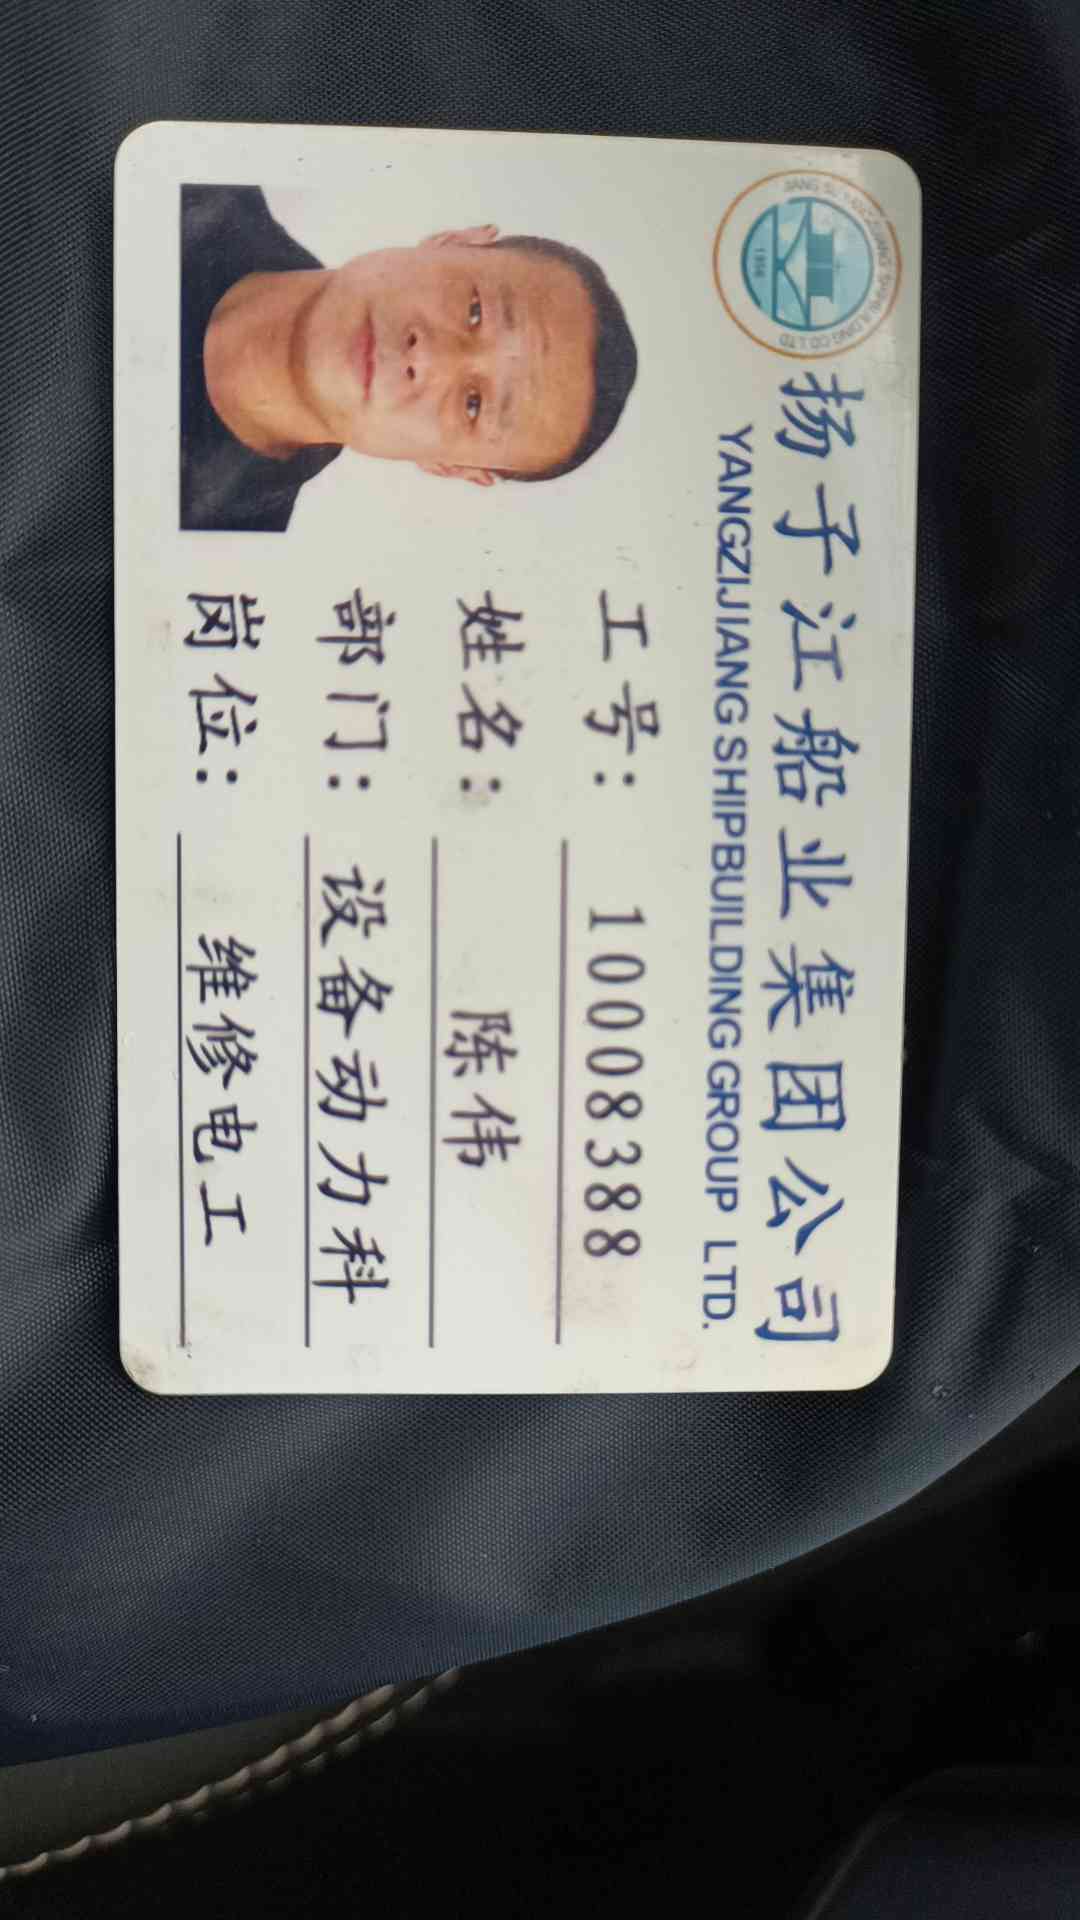 JIANG SU YANGZIJIANG SHIPBUILDING CO.LTD
1956
扬子江船业集团公司
YANGZIJIANG SHIPBUILDING GROUP LTD.
工号： 10008388
姓名： 陈伟
部门： 设备动力科
岗位： 维修电工